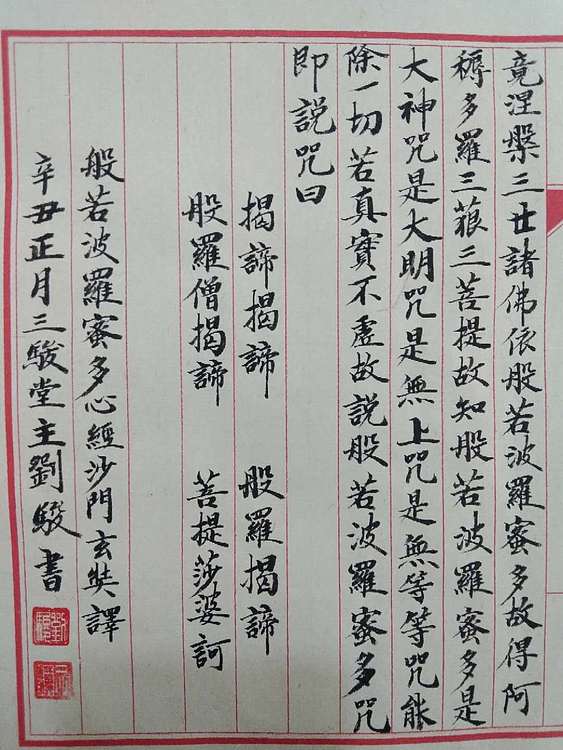 竟涅槃三世諸佛依般若波羅蜜多故得阿
耨多羅三藐三菩提故知般若波羅蜜多是
大神咒是大明咒是無上咒是無等等咒能
除一切苦真實不虛故説般若波羅蜜多咒
即説咒曰
揭諦揭諦 般羅揭諦
般羅僧揭諦 菩提莎婆訶
般若波羅蜜多心經沙門玄奘譯
辛丑正月三駿堂主劉駿書
劉駿